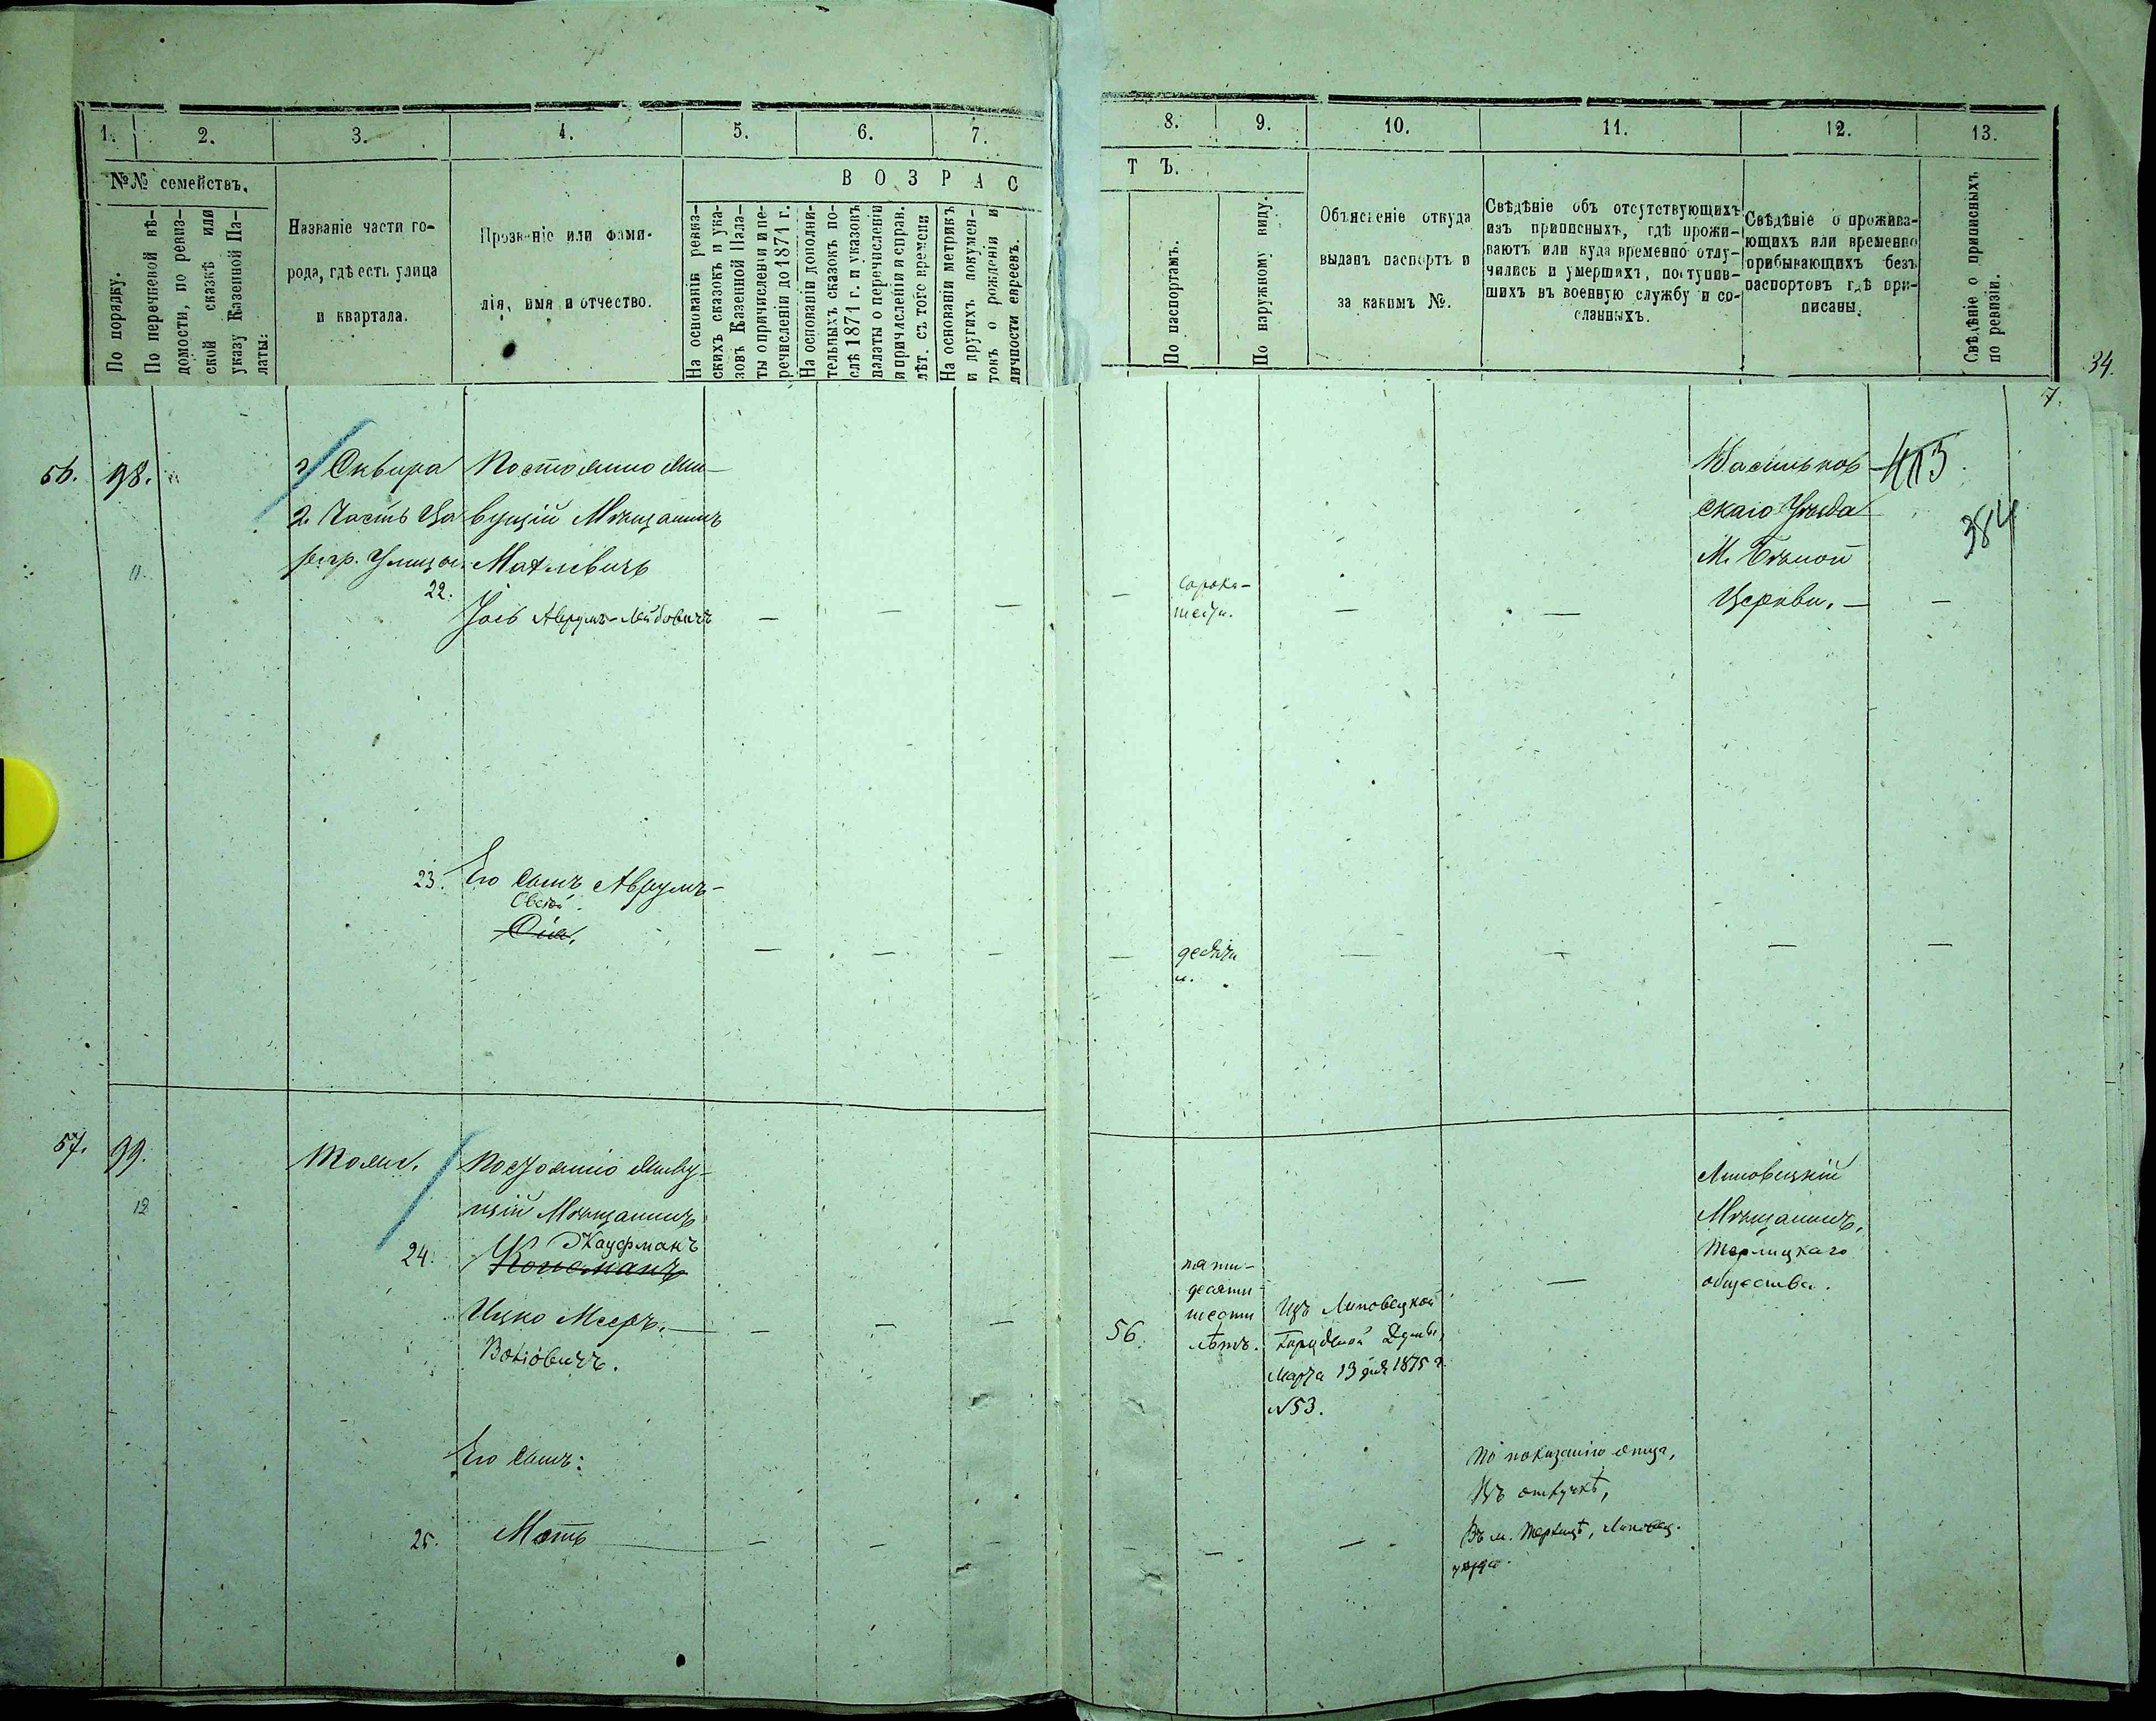 1. 2. 3. 4. 5. 6. 7. 8. 9. 10. 11. 12. 13.
№№ семействъ.
В О З Р А С Т Ъ.
По порядку.
По перечневой вѣ-
домости, по ревиз-
ской сказкѣ или
указу Казенной Па-
латы:
Названіе части го-
рода, гдѣ есть улица
и квартала.
Прозваніе или фами-
лія, имя и отчество.
На основаніи ревиз-
скихъ сказокъ и ука-
зовъ Казенной Пала-
ты о причисленіи и пе-
речисленіи до 1871 г.
На основаніи дополни-
тельныхъ сказокъ по-
слѣ 1871 г. и указовъ
палаты о перечисленіи
и причисленіи и справ.
лѣт. съ того времени
На основаніи метрикъ
и другихъ докумен-
товъ о рожденіи и
личности евреевъ.
По паспортамъ.
По наружному виду.
Объясненіе откуда
выданъ паспортъ и
за какимъ №.
Свѣдѣніе объ отсутствующихъ
изъ приписныхъ, гдѣ прожи-
ваютъ или куда временно отлу-
чились и умершихъ, поступив-
шихъ въ военную службу и со-
сланныхъ.
Свѣдѣніе о прожива-
ющихъ или временно
прибывающихъ безъ
паспортовъ гдѣ при-
писаны.
Свѣдѣніе о приписныхъ
по ревизіи.
34.
7.
56. 98.
11.
г Сквира
2. Часть
Улица
Постоянно жи-
вущій Мѣщанинъ
22.
Аврумъ-Лейбовичъ
сорока-
шести.
Васильков
скаго Уѣзда
М. Бѣлой
Церкви. —
413
384
23. Его сынъ Аврумъ-
Овсей
десяти
л.
57. 99.
12
Тоже.
Постоянно живу-
щій Мѣщанинъ
Кауфманъ
24.
Ицко Мееръ. —
56
пяти-
десяти
шести
лѣтъ.
Изъ Липовецкой
Городской Думы,
Марта 13 дня 1875 г.
№53.
Липовецкій
Мѣщанинъ,
Терлицкаго
общества.
Его сынъ:
25. Моть
По показанію отца,
Въ отлучкѣ,
Въ м. Терлицѣ, Липовец.
уѣзда.